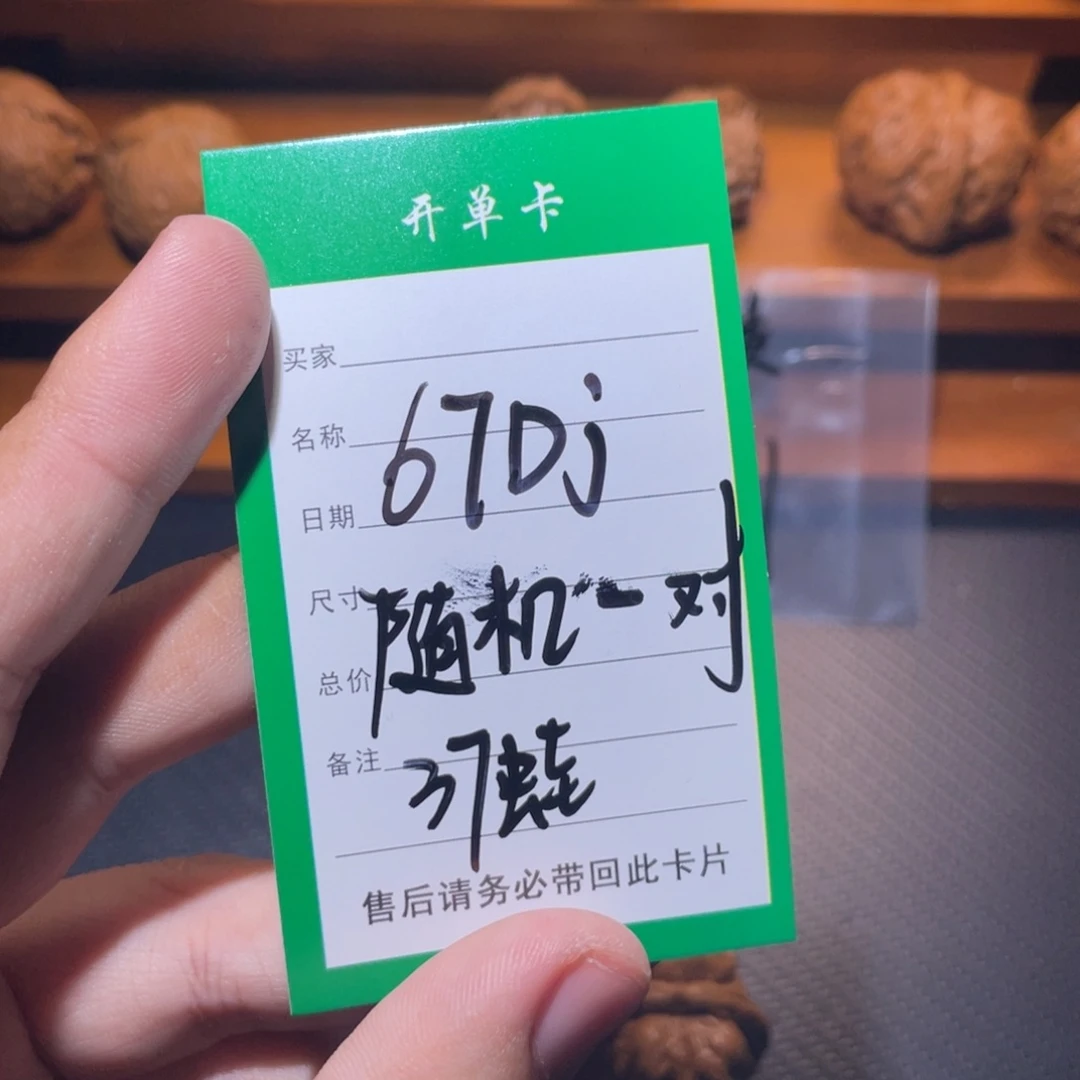 开单卡
买家
名称
67Dj
日期
尺寸
随机一对
总价
备注
37蛙
售后请务必带回此卡片